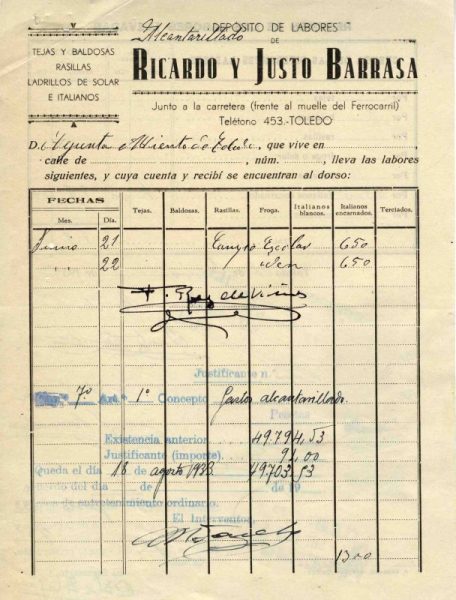 Alcantarillado
DEPÓSITO DE LABORES
DE
RICARDO Y JUSTO BARRASA
TEJAS Y BALDOSAS
RASILLAS
LADRILLOS DE SOLAR
E ITALIANOS
Junto a la carretera (frente al muelle del Ferrocarril)
Teléfono 453.-TOLEDO
D. Ayuntamiento de Toledo, que vive en
calle de , núm. , lleva las labores
siguientes, y cuya cuenta y recibí se encuentran al dorso:
FECHAS
Mes. Día. Tejas. Baldosas. Rasillas. Froga. Italianos blancos. Italianos encarnados. Terciados.
Junio 21 Escolar 650
22 650
Justificante n.
7º Art.º 1º Concepto Gastos alcantarillado
Pesetas
Existencia anterior 49.794,53
Justificante (importe) 91,00
Queda el día 18 de agosto 1933. 49703,53
del día de de 19
de entretenimiento ordinario.
El Interventor
1300